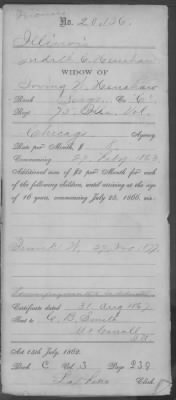 No. 20,136.
Illinois
Judith C. Henshaw
WIDOW OF
Loring P. Henshaw
Rank Sergt. Co. C.
Regt 75" Ills. Vol.
Chicago Agency
Rate per Month, $ 8
Commencing 27 July 1863
Additional sum of $2 per Month for each
of the following children, until arriving at the age
of 16 years, commencing July 25, 1866, viz:
Frank W. 27 Nov.
Certificate dated 31 Aug 1867
Sent to C. B. Smith
Mt Carroll
Ill
Act 14th July, 1862.
Book C Vol. 3 Page 238
Clerk.